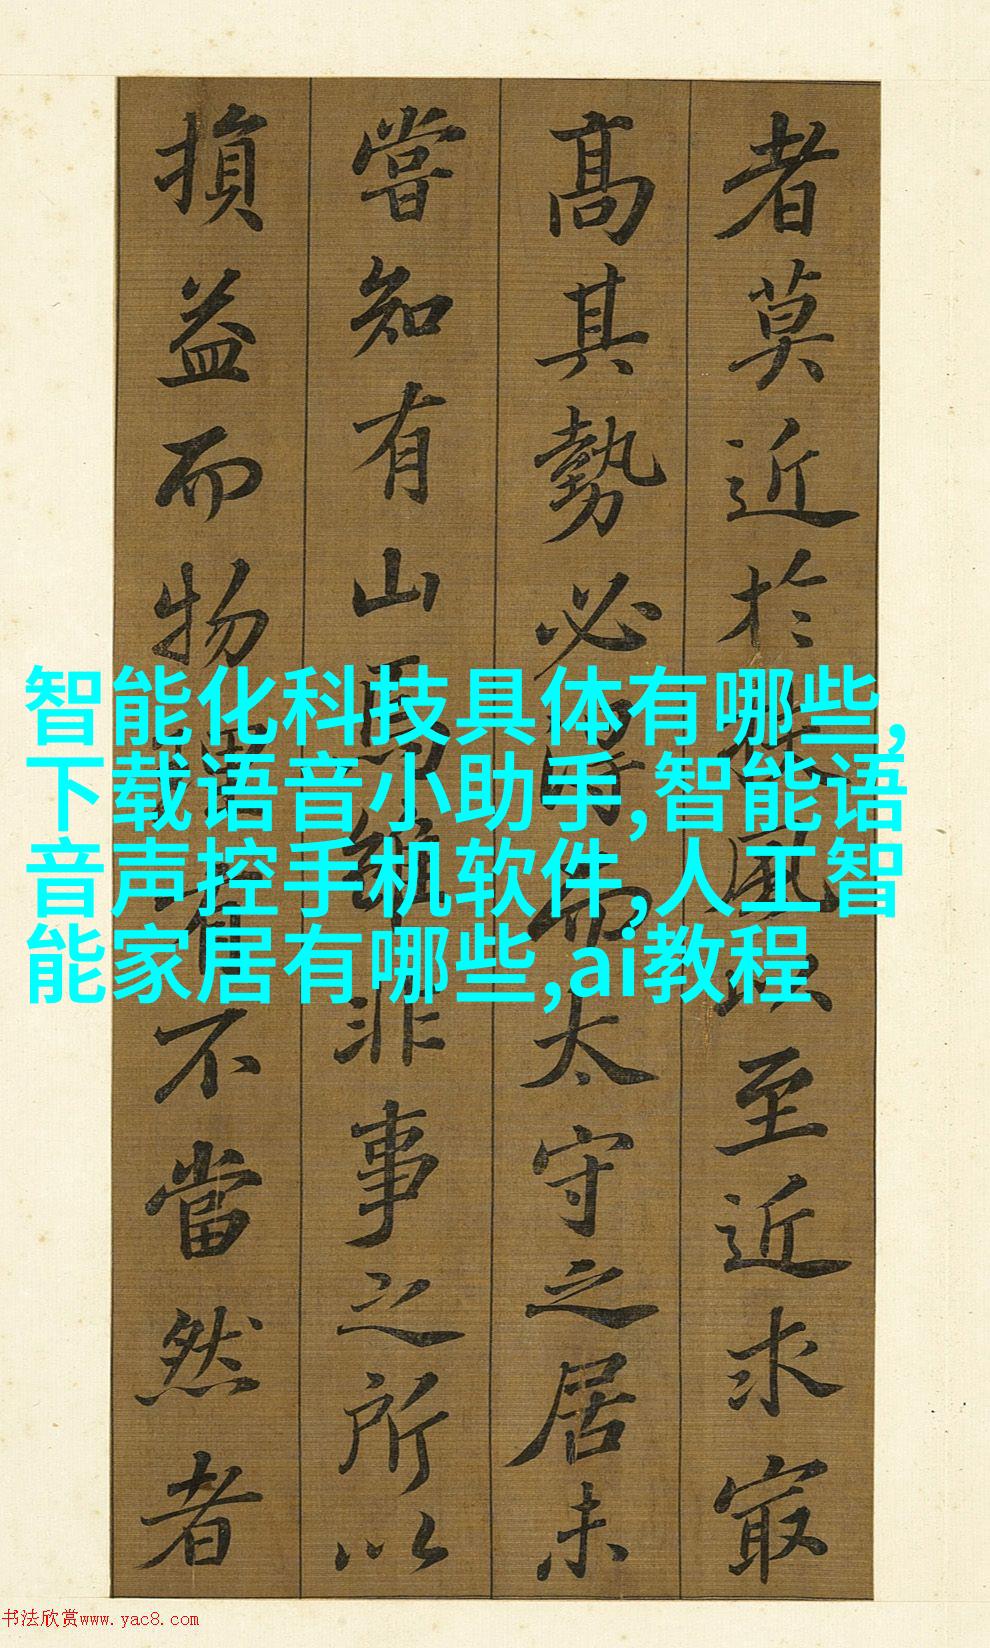 者莫近於扶風以至近求㝡
髙其勢必得而太守之居未
嘗知有山焉雖非事之所以
損益而物理有不當然者
智能化科技具体有哪些,
下载语音小助手,智能语
音声控手机软件,人工智
能家居有哪些,ai教程
书法欣赏www.yac8.com